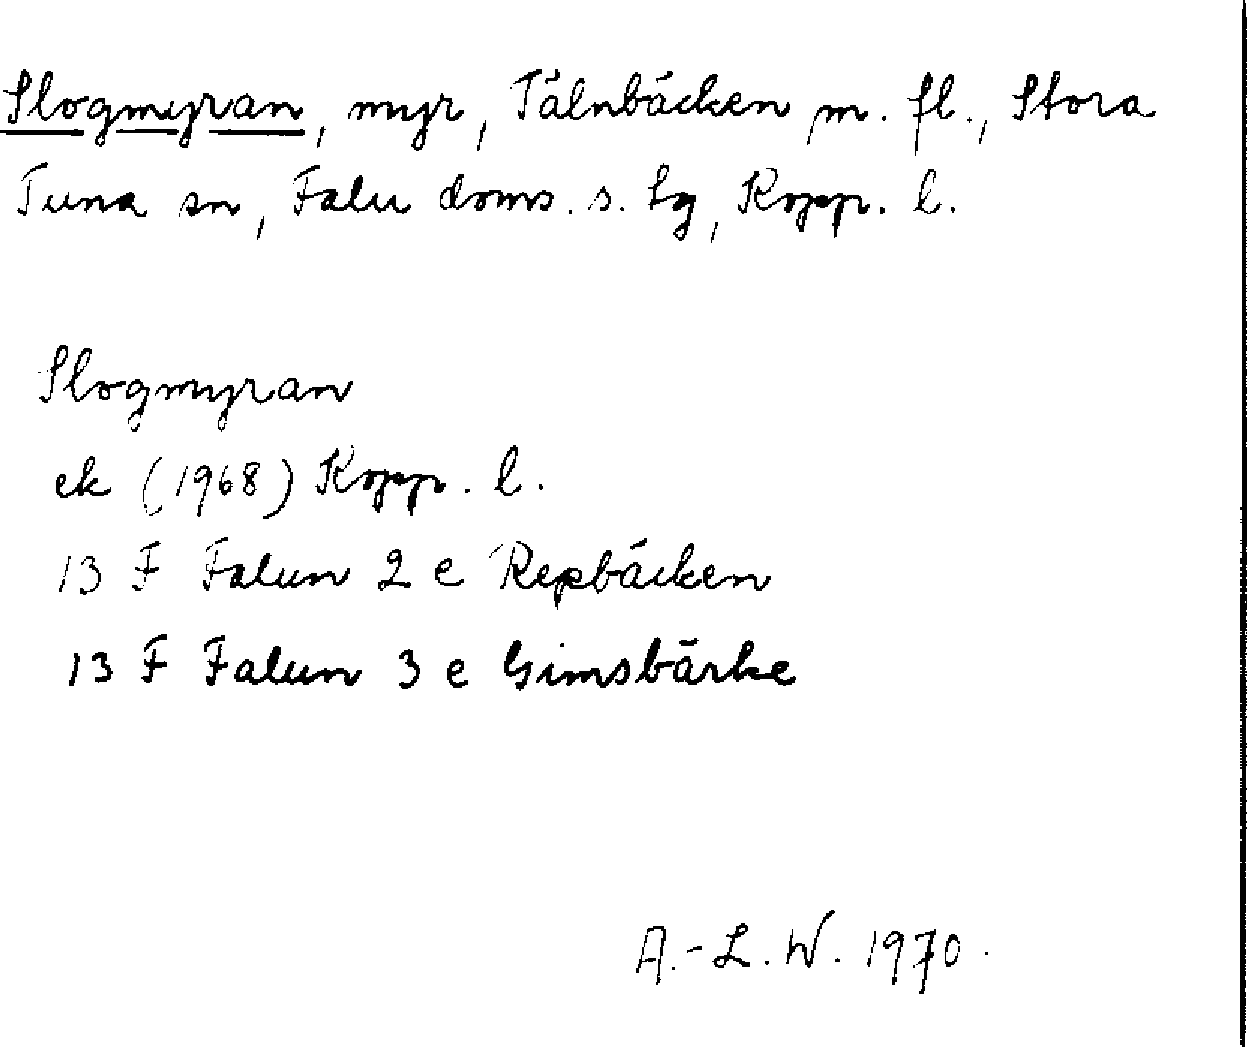 Slogmyran, myr, Tälnbäcken m. fl., Stora
Tuna sn, Falu doms. s. lg, Kopp. l.
Slogmyran
ek (1968) Kopp. l.
13 F Falun 2 e Repbäcken
13 F Falun 3 e Gimsbärke
A.-L. W. 1970.